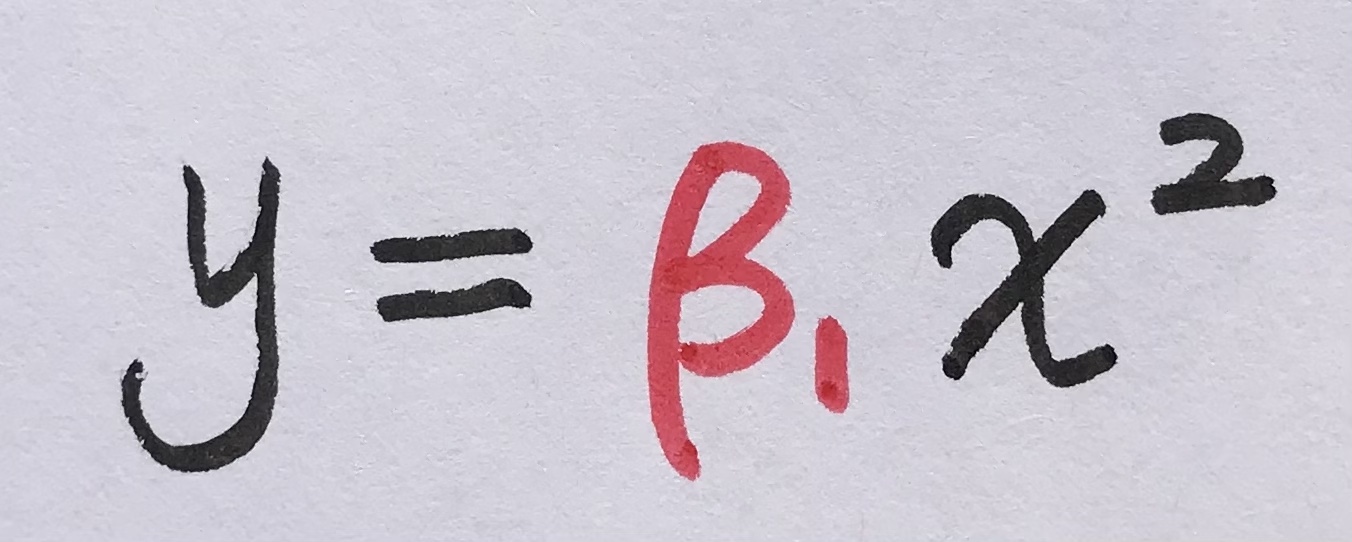 y = β₁ x²